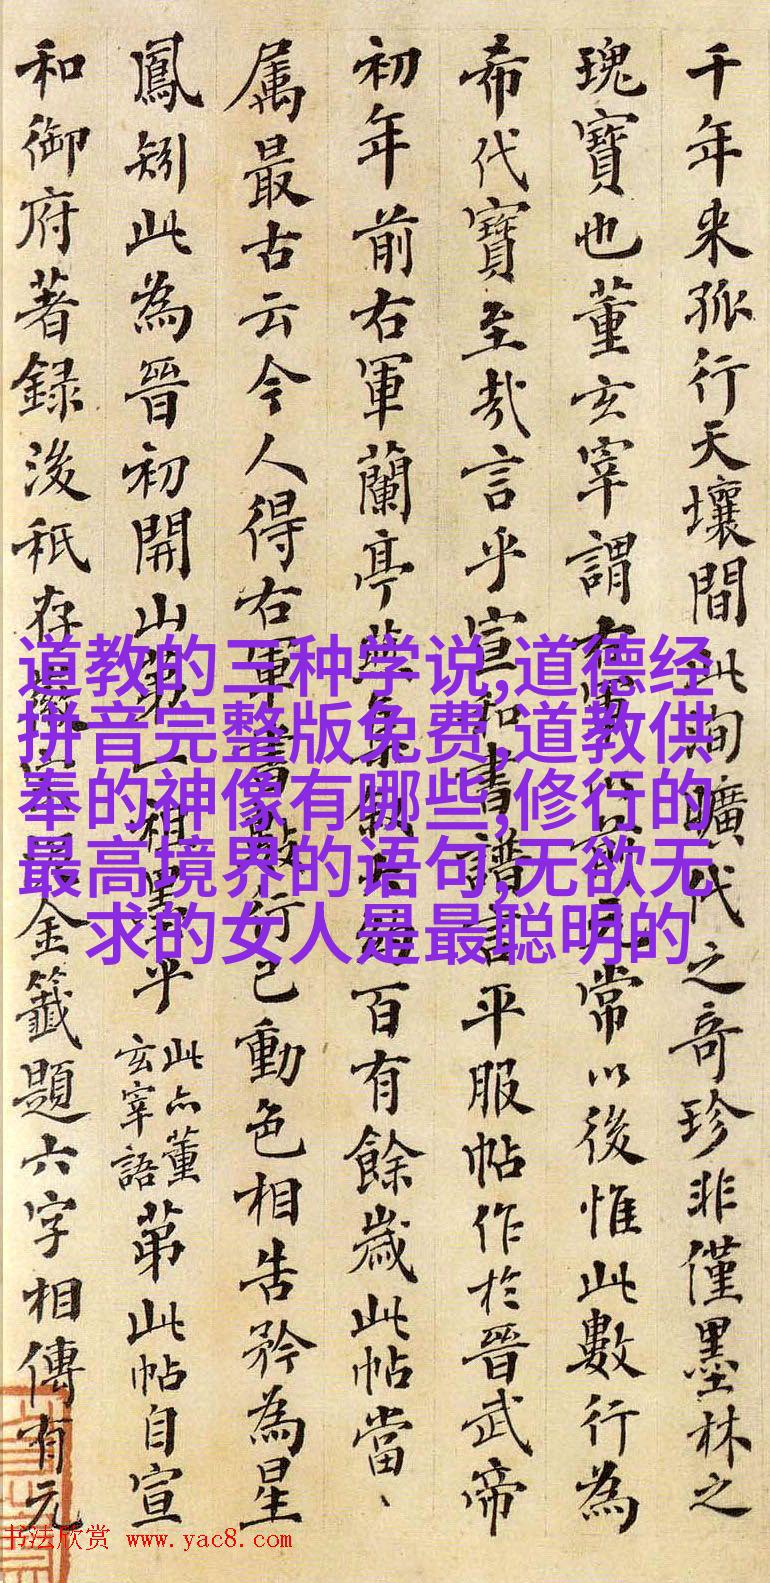 千年来孤行天壤間此洵曠代之奇珍非僅墨林之
瑰寶也董玄宰謂右軍以前元常以後惟此數行為
希代寶至哉言乎宣和書譜言平服帖作於晉武帝
初年前右軍蘭亭燕集敘大約百有餘歲此帖當、
属最古云今人得右軍書數行已動色相告矜為星
鳳矧此為晉初開山第一祖墨乎此亦董玄宰語苐此帖自宣
和御府著録後秖存徽宗泥金籤題六字相傳有元
道教的三种学说,道德经
拼音完整版免费,道教供
奉的神像有哪些,修行的
最高境界的语句,无欲无
求的女人是最聪明的
书法欣赏 www.yac8.com